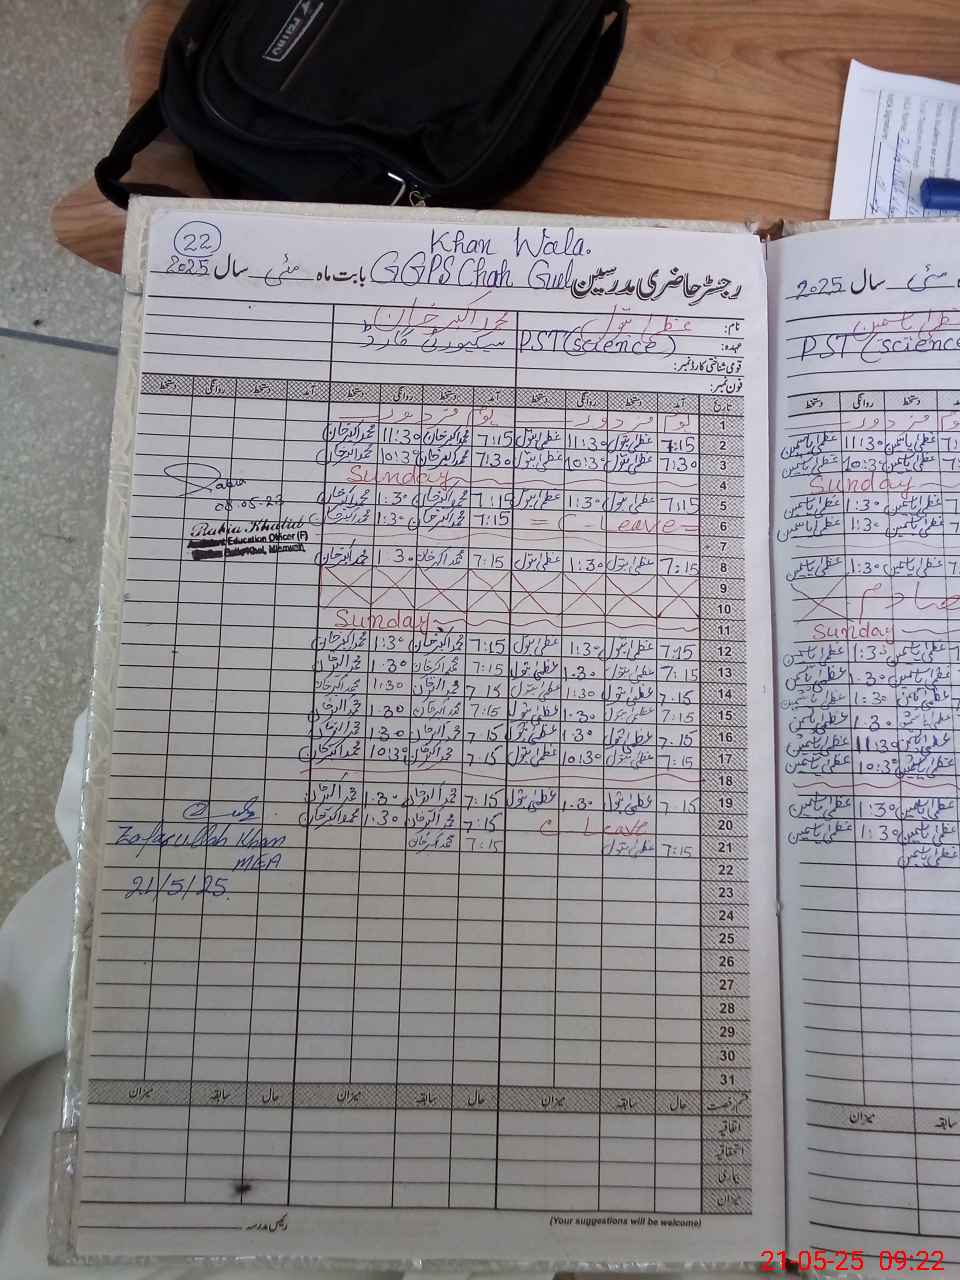 FEIRU
22
Khan Wala.
رجسٹر حاضری مدرسین GGPS Chah Gul بابت ماہ مئی سال 2025
نام: عظمیٰ بتول محمد اکبر خان
عہدہ: PST (science) سیکیورٹی گارڈ
قومی شناختی کارڈ نمبر:
فون نمبر:
تاریخ آمد دستخط روانگی دستخط آمد دستخط روانگی دستخط آمد دستخط روانگی دستخط
1 یوم مزدور یوم مزدور
2 7:15 عظمیٰ بتول 11:30 عظمیٰ بتول 7:15 محمد اکبر خان 11:30 محمد اکبر خان
3 7:30 عظمیٰ بتول 10:30 عظمیٰ بتول 7:30 محمد اکبر خان 10:30 محمد اکبر خان
4 Sunday
5 7:15 عظمیٰ بتول 1:30 عظمیٰ بتول 7:15 محمد اکبر خان 1:30 محمد اکبر خان
6 = C - Leave = 7:15 محمد اکبر خان 1:30 محمد اکبر خان
7
8 7:15 عظمیٰ بتول 1:30 عظمیٰ بتول 7:15 محمد اکبر خان 1:30 محمد اکبر خان
9
10
11 Sunday
12 7:15 عظمیٰ بتول 1:30 عظمیٰ بتول 7:15 محمد اکبر خان 1:30 محمد اکبر خان
13 7:15 عظمیٰ بتول 1:30 عظمیٰ بتول 7:15 محمد اکبر خان 1:30 محمد اکبر خان
14 7:15 عظمیٰ بتول 1:30 عظمیٰ بتول 7:15 محمد اکبر خان 1:30 محمد اکبر خان
15 7:15 عظمیٰ بتول 1:30 عظمیٰ بتول 7:15 محمد اکبر خان 1:30 محمد اکبر خان
16 7:15 عظمیٰ بتول 1:30 عظمیٰ بتول 7:15 محمد اکبر خان 1:30 محمد اکبر خان
17 7:15 عظمیٰ بتول 10:30 عظمیٰ بتول 7:15 محمد اکبر خان 10:30 محمد اکبر خان
18
19 7:15 عظمیٰ بتول 1:30 عظمیٰ بتول 7:15 محمد اکبر خان 1:30 محمد اکبر خان
20 C Leave 7:15 محمد اکبر خان 1:30 محمد اکبر خان
21 7:15 عظمیٰ بتول 7:15 محمد اکبر خان
22
23
24
25
26
27
28
29
30
31
Rabia
08-05-25
Rabia Khalid
Education Officer (F)
Zafarullah Khan
MEA
21/5/25.
قسم رخصت حال سابقہ میزان حال سابقہ میزان حال سابقہ میزان
اتفاقیہ
استحقاقیہ
بیماری
میزان
(Your suggestions will be welcome)
رئیس مدرسہ
سال مئی 2025
عظمیٰ یاسمین
PST (science
دستخط روانگی دستخط
مزدور
عظمیٰ یاسمین 11:30 عظمیٰ یاسمین
عظمیٰ یاسمین 10:30 عظمیٰ یاسمین
Sunday
عظمیٰ یاسمین 1:30 عظمیٰ یاسمین
عظمیٰ یاسمین 1:30 عظمیٰ یاسمین
عظمیٰ یاسمین 1:30 عظمیٰ یاسمین
Sunday
عظمیٰ یاسمین 1:30 عظمیٰ یاسمین
عظمیٰ یاسمین 1:30 عظمیٰ یاسمین
عظمیٰ یاسمین 1:30 عظمیٰ یاسمین
عظمیٰ یاسمین 1:30 عظمیٰ یاسمین
عظمیٰ یاسمین 11:30 عظمیٰ یاسمین
عظمیٰ یاسمین 10:30 عظمیٰ یاسمین
عظمیٰ یاسمین 1:30 عظمیٰ یاسمین
عظمیٰ یاسمین 1:30 عظمیٰ یاسمین
عظمیٰ یاسمین
سابقہ میزان
21-05-25 09:22